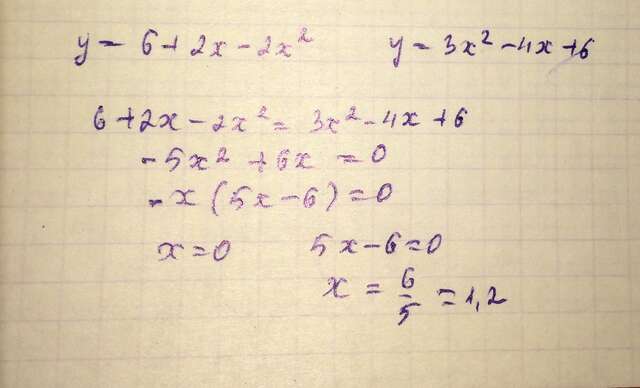 y = 6 + 2x - 2x²    y = 3x² - 4x + 6
6 + 2x - 2x² = 3x² - 4x + 6
- 5x² + 6x = 0
- x (5x - 6) = 0
x = 0    5x - 6 = 0
x = 6/5 = 1,2